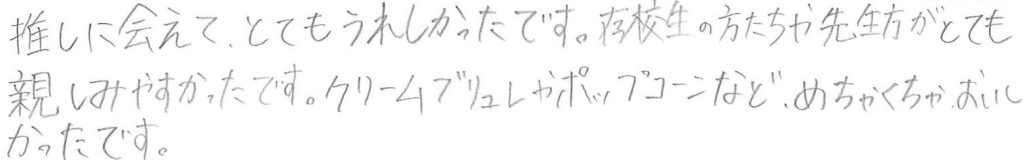 推しに会えて、とてもうれしかったです。存校生の方たちや先生方がとても
親しみやすかったです。クリームブリュレやポップコーンなど、めちゃくちゃ、おいし
かったです。